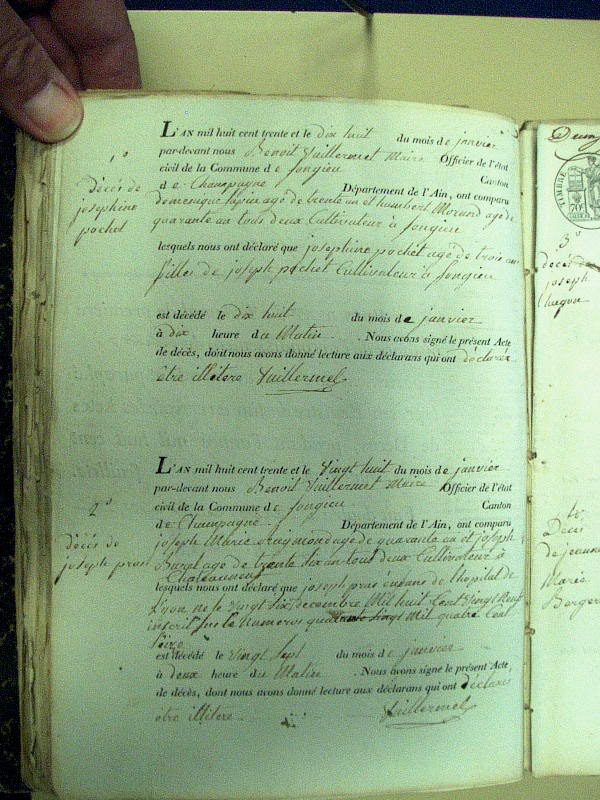 1°
décès de
josephine
pochet
L'AN mil huit cent trente et le dix huit du mois de janvier
par-devant nous Benoit Vuillermet Maire Officier de l'état
civil de la Commune de Jongieu Canton
de Champagne Département de l'Ain, ont comparu
domenique lapin age de trente an et humbert Morand age de
quarante an tous deux Cultivateur à Jongieu
lesquels nous ont déclaré que josephine pochet agé de trois ans
fille de joseph pochet Cultivateur à Jongieu
est décédé le dix huit du mois de janvier
à dix heure du Matin . Nous avons signé le présent Acte
de décès, dont nous avons donné lecture aux déclarans qui ont déclaré
être illitere Vuillermet
2°
décés de
joseph pras
L'AN mil huit cent trente et le Vingt huit du mois de janvier
par-devant nous Benoit Vuillermet Maire Officier de l'état
civil de la Commune de Jongieu Canton
de Champagne Département de l'Ain, ont comparu
joseph Marie Raymond age de quarante an et joseph
age de trente six an tous deux Cultivateur à
Chateauneuf
lesquels nous ont déclaré que joseph pras enfans de l'hopital de
Lyon né le Vingt six decembre Mil huit Cent Vingt Neuf
inscrit sur le Numeros Mil quatre Cent
est décédé le Vingt Sept du mois de janvier
à deux heure du Matin . Nous avons signé le présent Acte
de décès, dont nous avons donné lecture aux déclarans qui ont déclaré
être illitere Vuillermet
TIMBRE
70c
3°
décés de
joseph
Décé
de jeanne
Marie
Berger